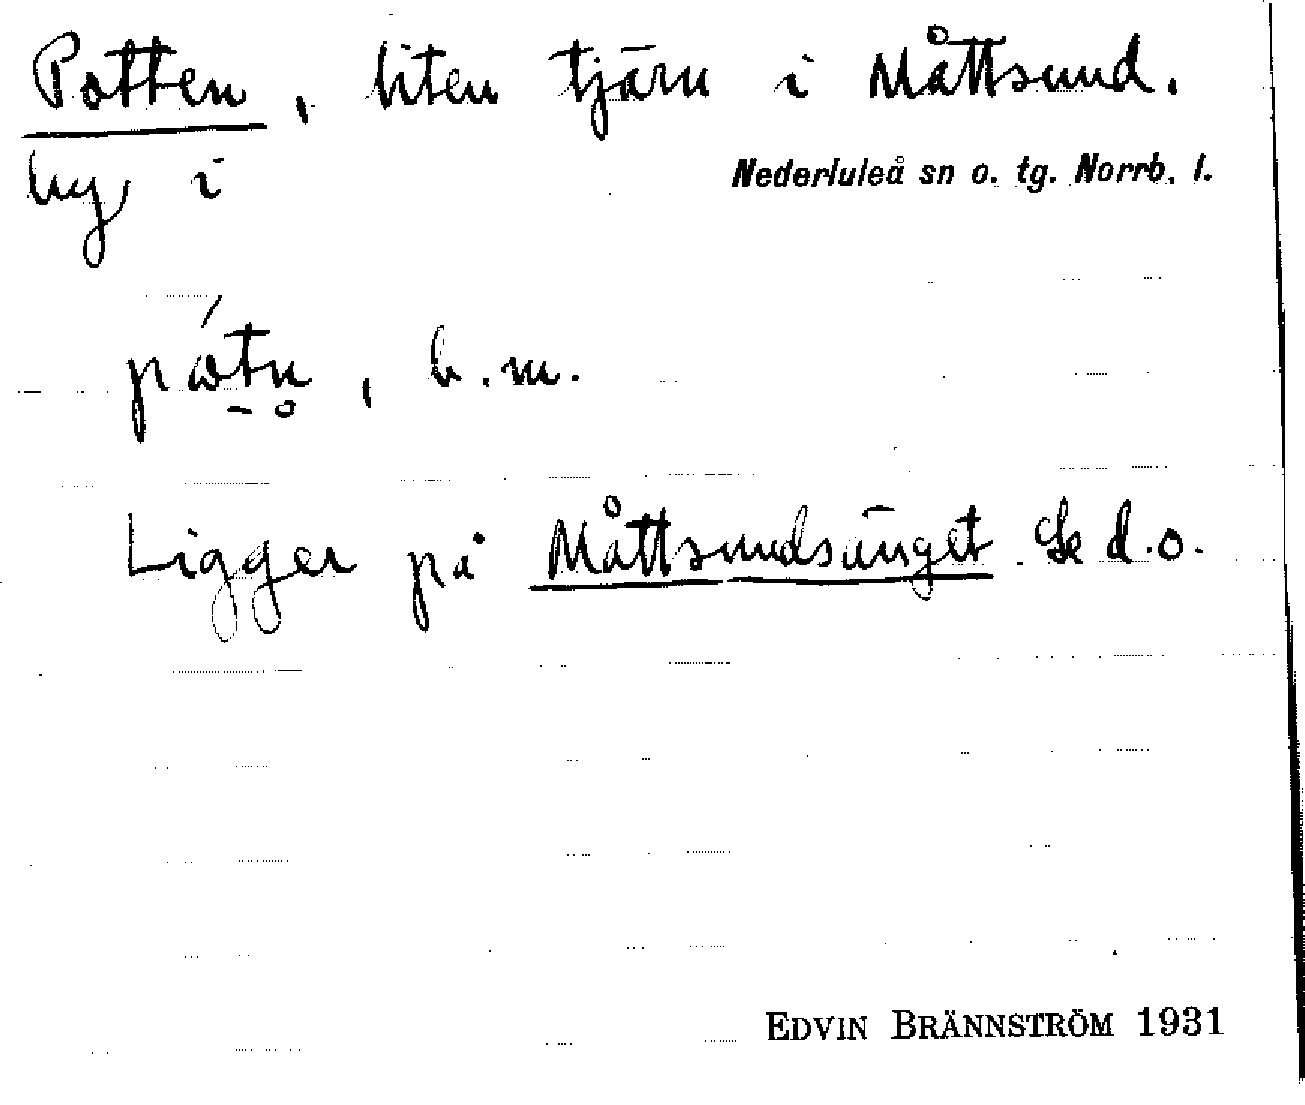 Potten, liten tjärn i Måttsund.
by i Nederluleå sn o. tg. Norrb. l.
, b. m.
Ligger på Måttsundsänget. Se d.o.
EDVIN BRÄNNSTRÖM 1931